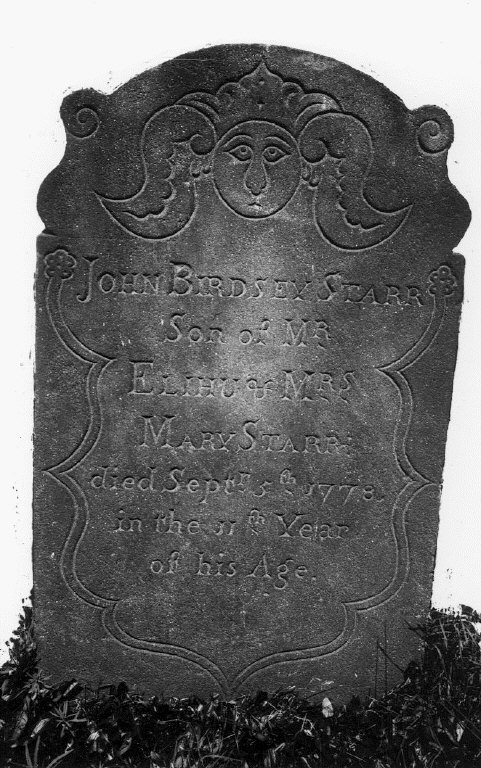 JOHN BIRDSEY STARR
Son of MR
ELIHU & MRS
MARY STARR:
died Septr. 5th. 1778.
in the 11th Year
of his Age.